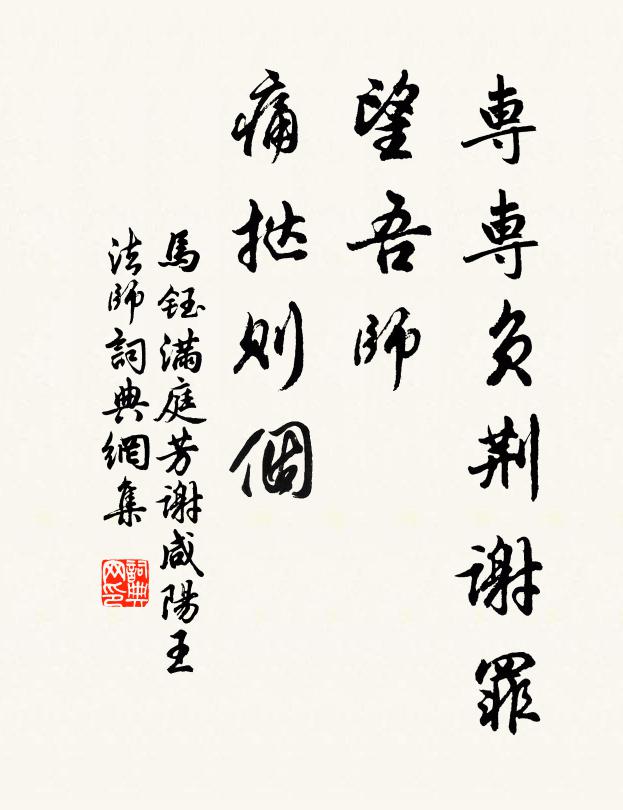 専専負荆謝罪
望吾師
痛挞則個
馬鈺滿庭芳謝咸陽王
法師詞典網集
詞典
网印